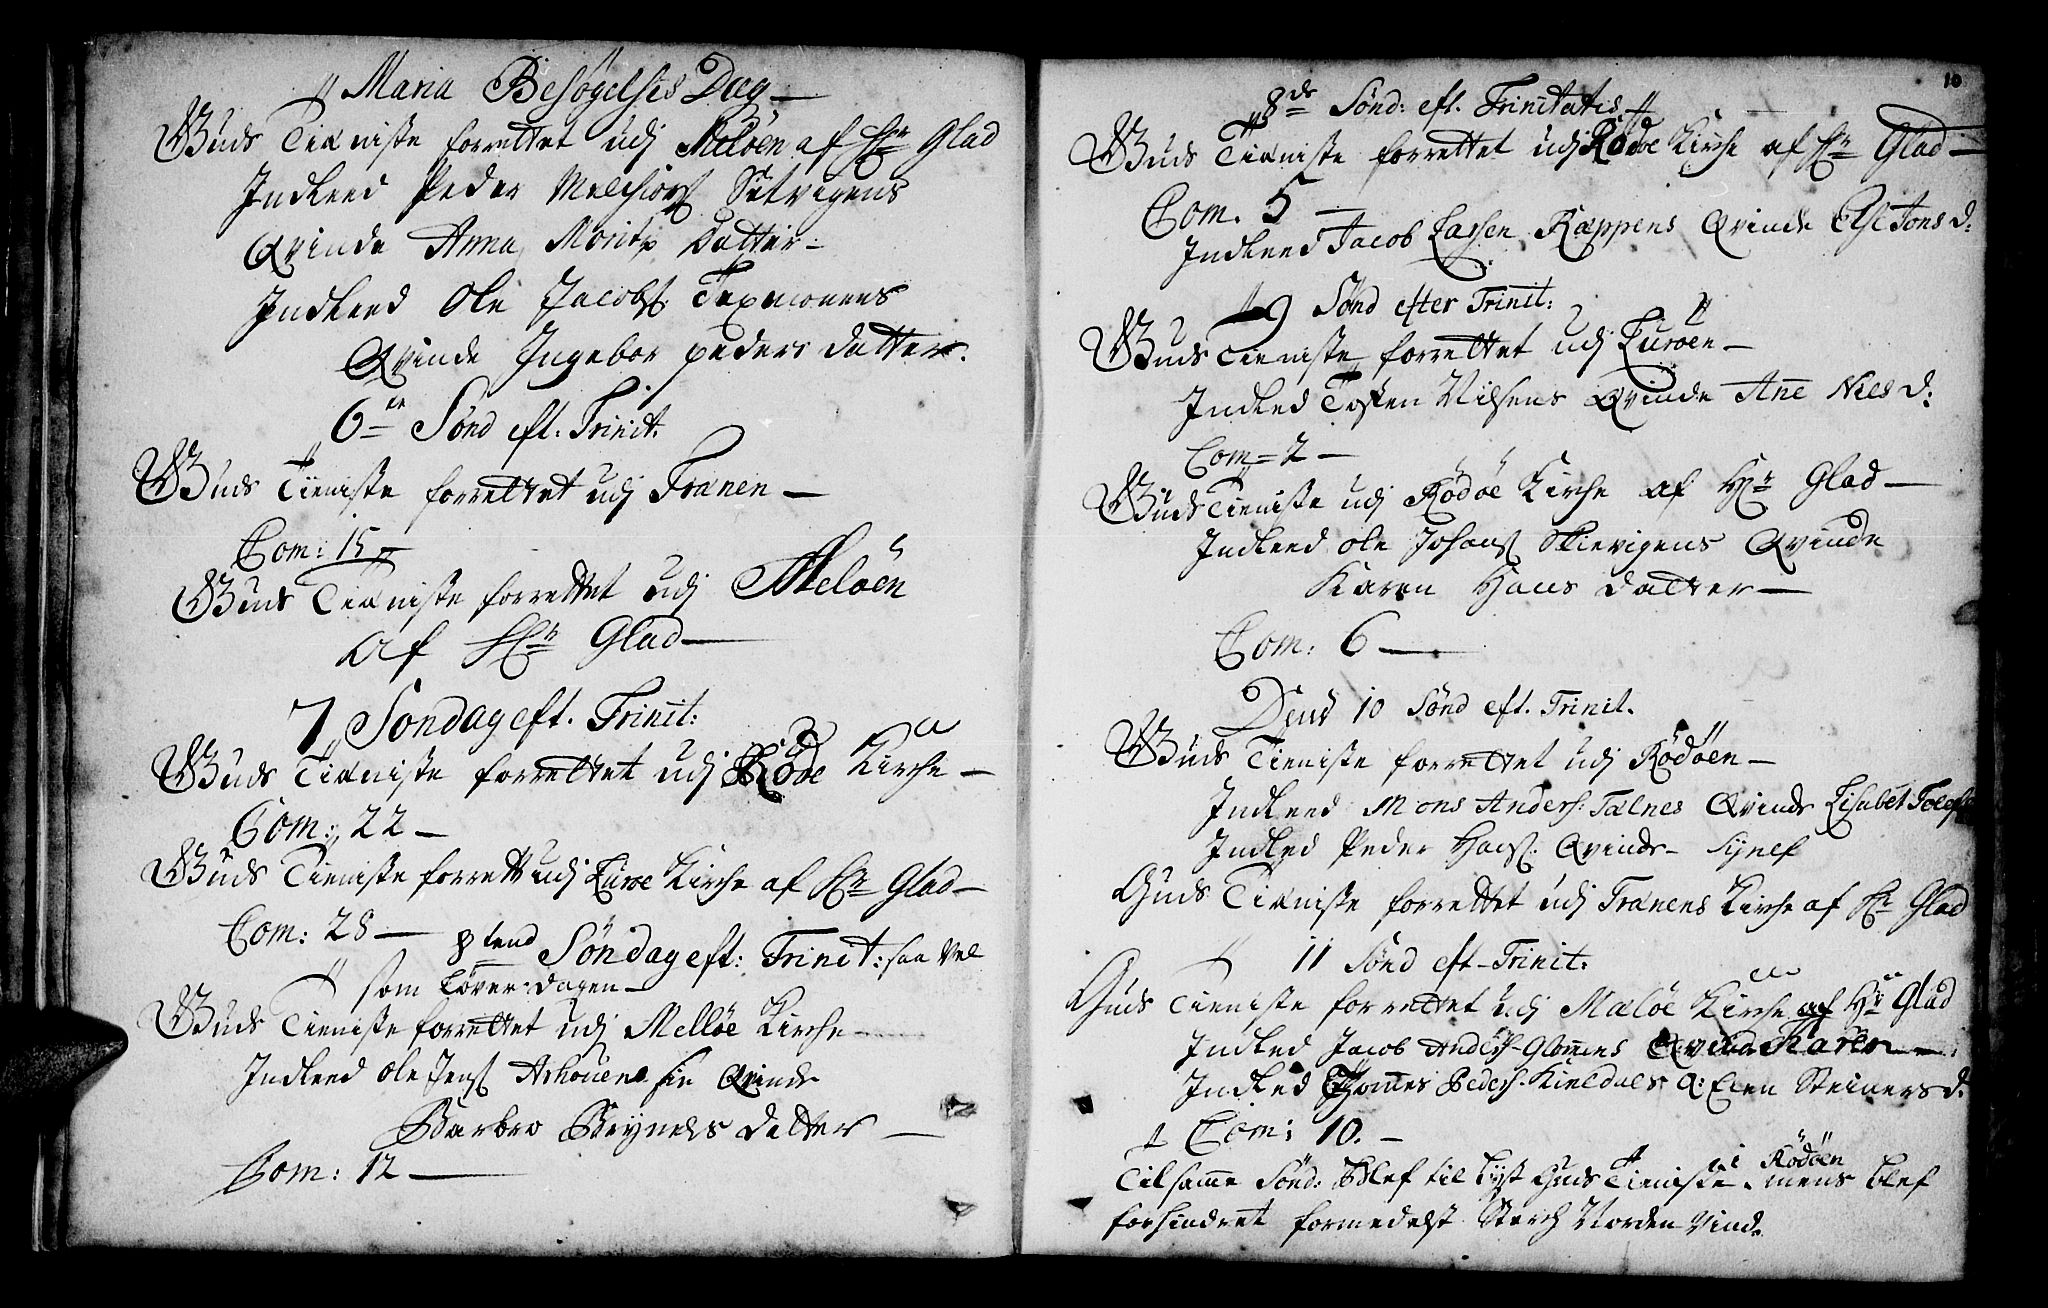 Maria Besøgelses Dag —
Guds Tienniste forrettet udj Meløen af Hr Glad
Indleed Peder Melchiors: Setvigens
Qvinde Anna Moritz Datter —
Indleed Ole Jacobs:
Qvinde Ingebor peders datter.
6te Sønd eft: Trinit:
Guds Tieniste forrettet udj Trænen —
Com: 15
Guds Tienniste forrettet udj Meløen
af Hr Glad —
7 Søndag eft. Trinit:
Guds Tienniste forrettet udj Rødøe Kirche —
Com: 22 —
Guds Tieniste forrett udj Lurøe Kirche af Hr Glad —
Com: 28 —
8tend Søndag eft: Trinit: saa vel
som Løverdagen —
Guds Tieniste forrettet udj Melløe Kirche —
Indleed Ole Jens: sin Qvinde
Barbro Reynels datter —
Com: 12 —
10
8de Sønd: eft. Trinitatis
Guds Tieniste forrettet udj Rødøe Kirche af Hr Glad —
Com. 5 —
Indleed Jacob Larsen Ræppens Qvinde Else Jons d:
9 Sønd efter Trinit:
Guds Tieniste forrettet udj Lurøen —
Indled Tosten Nilsens Qvinde Ane Niels d:
Com = 2 —
Guds Tieniste udj Rødøe Kirche af Hr Glad —
Indleed ole Johans: Skievigens Qvinde
Karen Hans datter —
Com: 6 —
Dend 10 Sønd eft. Trinit.
Guds Tieniste forrettet udj Rødøen —
Indleed Mons Anders: Talnes Qvinde Lisabet
Indled Peder Hans: Qvinde —
Guds Tienniste forrettet udj Trænens Kirche af Hr Glad
11 Sønd eft — Trinit:
Guds Tieniste forrettet udj Mæløe Kirche af Hr Glad
Indled Jacob Anders: Glommens Qvinde Karen —
Indled Thomes Peders: Kieldals Q: Elen Steiners d.
Com: 10. —
Tilsamme Sønd: blef til lyst Guds Tieniste i Rødøen mens blef
forhindret formedelst Sterch Norden Vind.